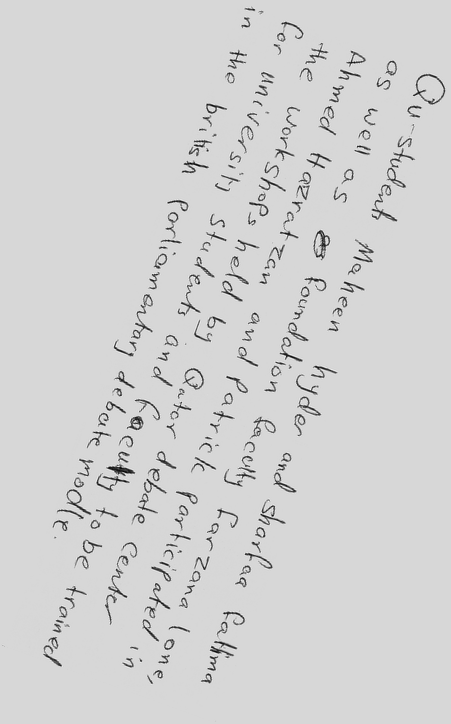 QU-students Maheen hyder and sharfaa fatima
as well as foundation faculty farzana lone,
Ahmed Hazratzan and Patrick participated in
the workshops held by Qatar debate center
for university students and faculty to be trained
in the british parliamentary debate modle.